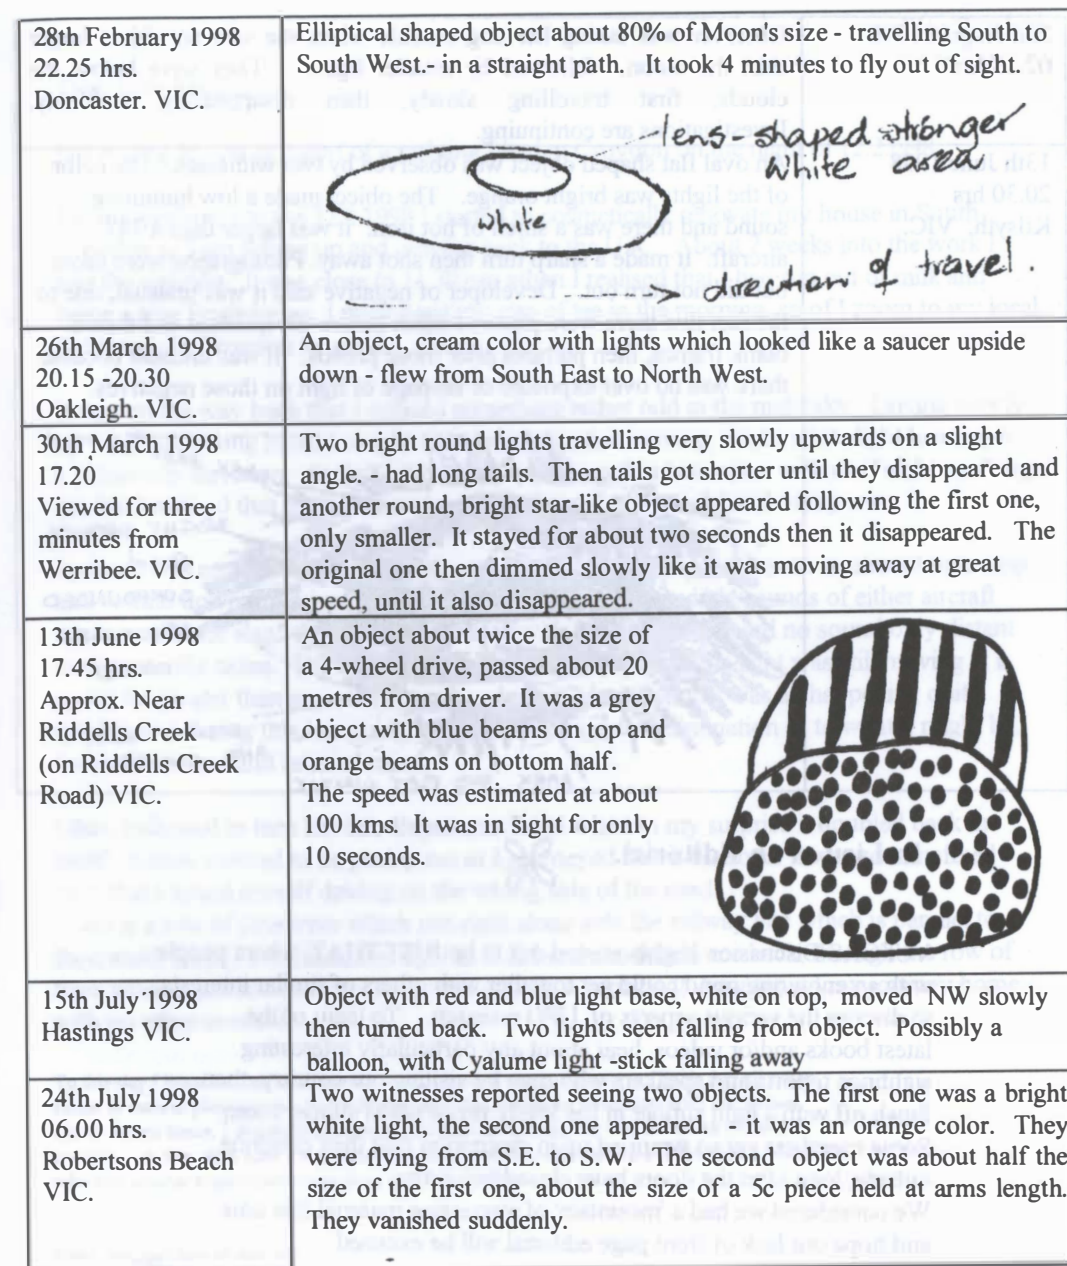 28th February 1998
22.25 hrs.
Doncaster. VIC.
Elliptical shaped object about 80% of Moon's size - travelling South to
South West.- in a straight path. It took 4 minutes to fly out of sight.
lens-shaped stronger
white area
white
direction of travel.
26th March 1998
20.15 -20.30
Oakleigh. VIC.
An object, cream color with lights which looked like a saucer upside
down - flew from South East to North West.
30th March 1998
17.20
Viewed for three
minutes from
Werribee. VIC.
Two bright round lights travelling very slowly upwards on a slight
angle. - had long tails. Then tails got shorter until they disappeared and
another round, bright star-like object appeared following the first one,
only smaller. It stayed for about two seconds then it disappeared. The
original one then dimmed slowly like it was moving away at great
speed, until it also disappeared.
13th June 1998
17.45 hrs.
Approx. Near
Riddells Creek
(on Riddells Creek
Road) VIC.
An object about twice the size of
a 4-wheel drive, passed about 20
metres from driver. It was a grey
object with blue beams on top and
orange beams on bottom half.
The speed was estimated at about
100 kms. It was in sight for only
10 seconds.
15th July 1998
Hastings VIC.
Object with red and blue light base, white on top, moved NW slowly
then turned back. Two lights seen falling from object. Possibly a
balloon, with Cyalume light -stick falling away
24th July 1998
06.00 hrs.
Robertsons Beach
VIC.
Two witnesses reported seeing two objects. The first one was a bright
white light, the second one appeared. - it was an orange color. They
were flying from S.E. to S.W. The second object was about half the
size of the first one, about the size of a 5c piece held at arms length.
They vanished suddenly.